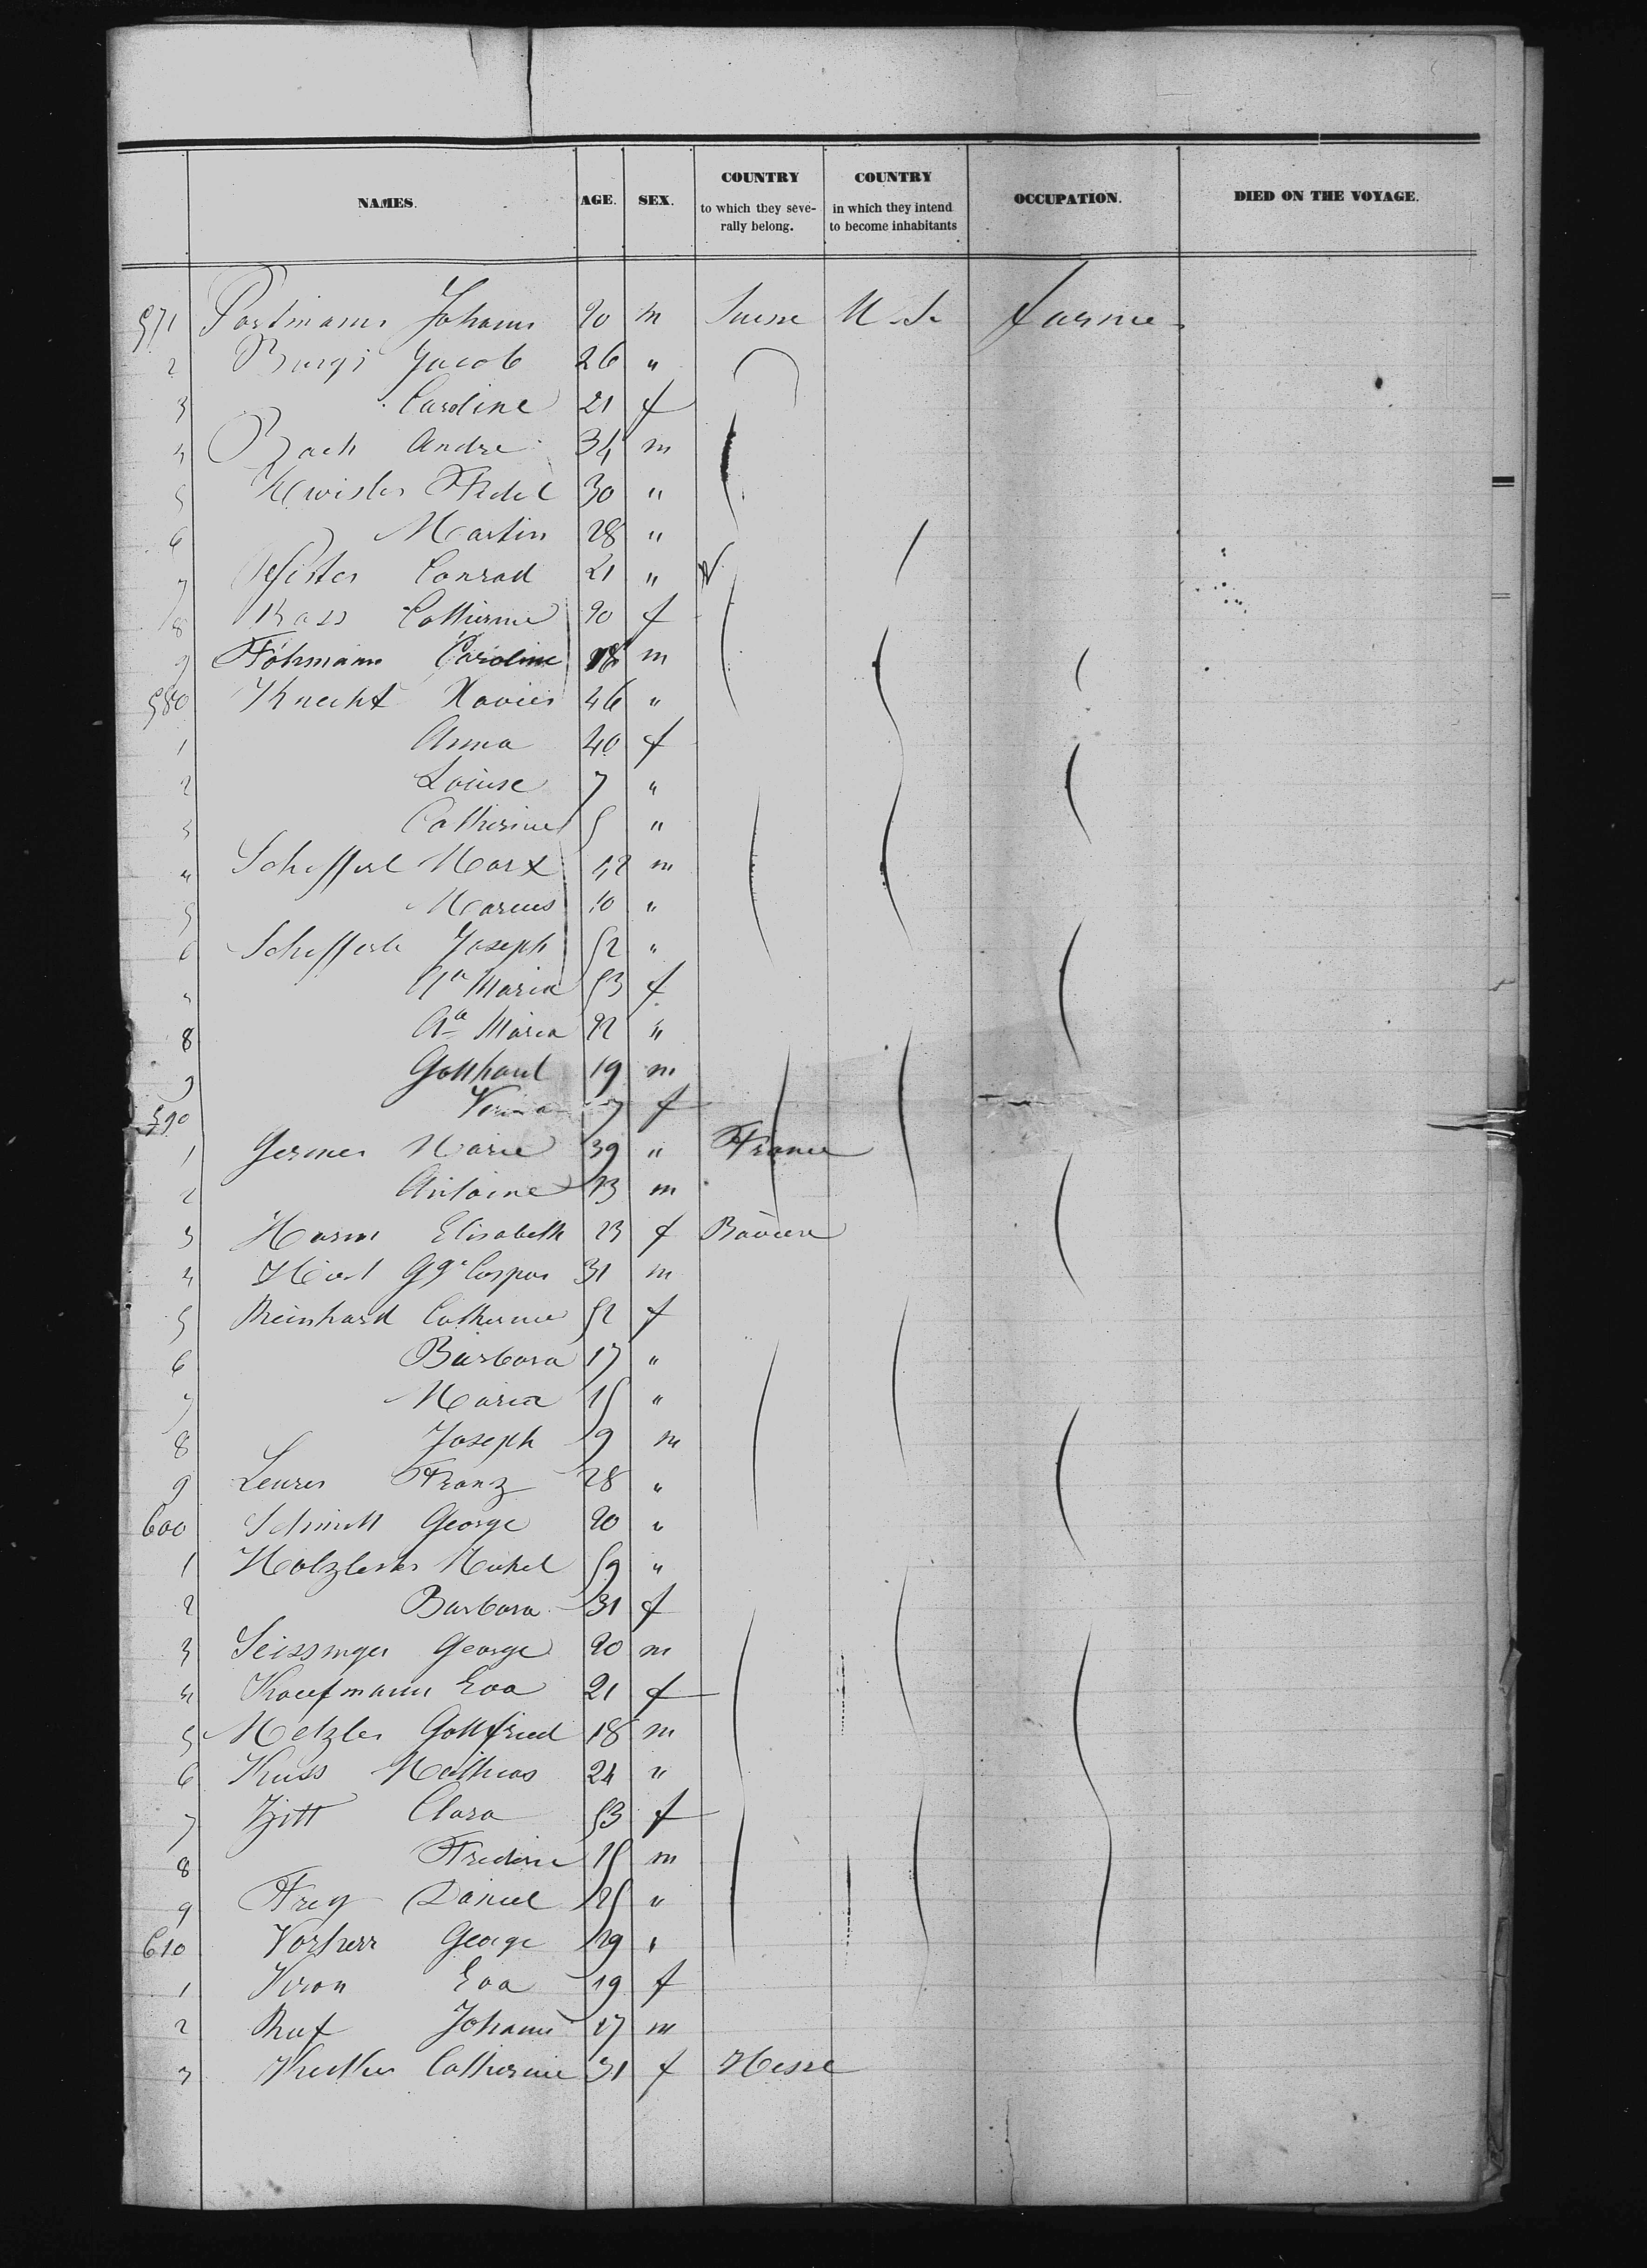 NAMES. AGE. SEX. COUNTRY to which they severally belong. COUNTRY in which they intend to become inhabitants OCCUPATION. DIED ON THE VOYAGE.
571 Portmann Johann 20 m Suisse U.S. Farmer
2 Burgi Jacob 26 "
3 Caroline 21 f
4 Bach Andre 34 m
5 Fidel 30 "
6 Martin 28 "
7 Pfister Conrad 21 "
8 Rass Catherine 20 f
9 Föhmann Caroline 18 m
580 Knecht Xavier 46 "
1 Anna 40 f
2 Louise 7 "
3 Catherine 5 "
4 Schefferl Marx 42 m
5 Marcus 10 "
6 Schefferle Joseph 52 "
7 Aa Maria 53 f
8 Aa Maria 22 "
9 Gotthard 19 m
590 Verena 7 f
1 Germer Marie 39 " France
2 Antoine 13 m
3 Elisabeth 23 f Bavière
4 Gge Caspar 31 m
5 Reinhard Catherine 52 f
6 Barbara 17 "
7 Maria 15 "
8 Joseph 9 m
9 Leurer Franz 28 "
600 Schmitt George 20 "
1 Michel 59 "
2 Barbara 31 f
3 Seissinger George 20 m
4 Kaufmann Eva 21 f
5 Metzler Gottfried 18 m
6 Kuss Mathias 24 "
7 Zitt Clara 53 f
8 Frederic 15 m
9 Frey Daniel 25 "
610 Vorherr George 29 "
1 Veron Eva 19 f
2 Ruf Johann 27 m
3 Catherine 31 f Hesse